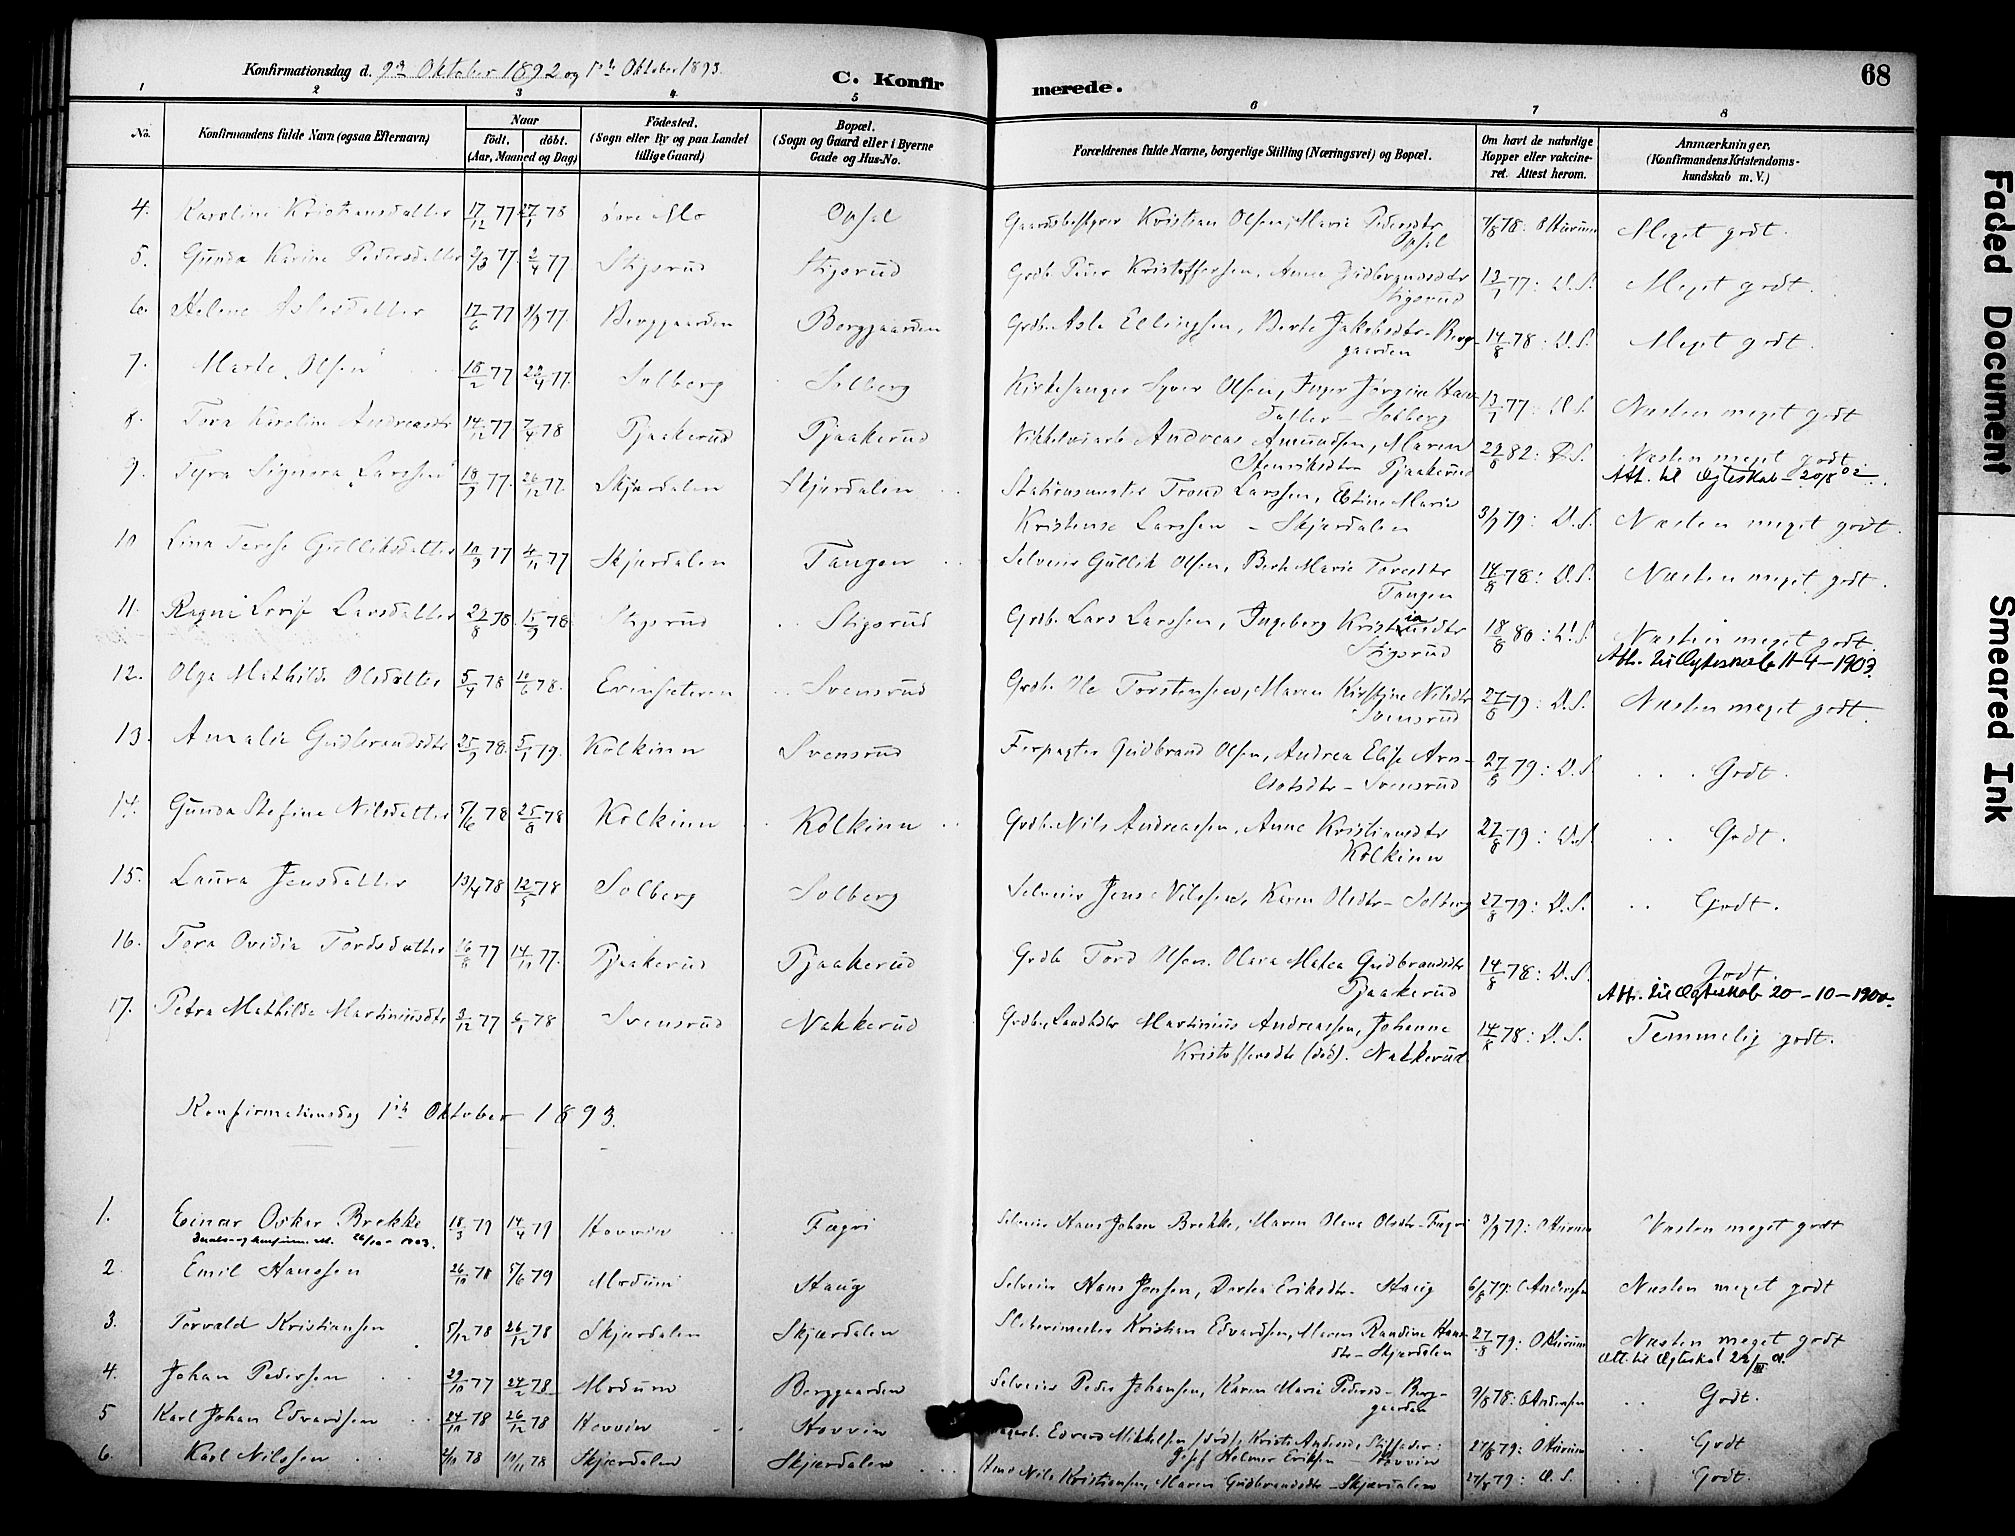 Konfirmationsdag d. 9de Oktober 1892 og 1ste Oktober 1893.
C. Konfirmerede.
68
1 2 3 4 5 6 7 8
No.
Konfirmandens fulde Navn (ogsaa Efternavn)
Naar
født. døbt.
(Aar, Maaned og Dag)
Fødested.
(Sogn eller By og paa Landet
tillige Gaard)
Bopæl.
(Sogn og Gaard eller i Byerne
Gade og Hus-No.
Forældrenes fulde Navne, borgerlige Stilling (Næringsvei) og Bopæl.
Om havt de naturlige
Kopper eller vakcine-
ret. Attest herom.
Anmærkninger.
(Konfirmandens Kristendoms-
kundskab m. V.)
4. Karoline Kristiansdatter 17/12 77 27/1 78 øvre Mo Opsal Gaardsbestyrer Kristian Olsen, Marie Pedersdtr Opsal Meget godt.
5. Gunda Karine Pedersdatter 2/3 77 2/4 77 Stigsrud Stigsrud Grdb. Peder Kristoffersen, Anne Gudbrandsdtr Stigsrud 13/7 77: D.S. Meget godt.
6. Helene Aslesdatter 17/6 77 Berggaarden Berggaarden Grdb. Asle Ellingsen, Berte Jakobsdtr Berggaarden 14/8 78: D.S. Meget godt.
7. Marte Olsen 18/2 77 22/4 77. Solberg Solberg Kirkesanger Syver Olsen, Inger Jørgine Hansdatter - Solberg 13/7 77: D.S. Næsten meget godt
8. Tora Karoline Andreasdtr 14/12 77 7/4 78 Pjaakerud Pjaakerud Andreas Amundsen, Maren Henriksdtr Pjaakerud 82: D.S. Næsten meget godt.
Att. til Ægteskab 20/8 02
9. Tyra Signora Larssen 18/9 77. 26/12 77. Skjærdalen Skjærdalen Stationsmester Trond Larssen, Marie Kristense Larssen - Skjærdalen 79: D.S. Næsten meget godt.
10 Lina Terese Gulliksdatter 10/9 77 4/11 77 Skjærdalen Tangen Selveier Gullik Olsen, Berte Marie Toresdtr Tangen 14/8 78: D.S. Næsten meget godt.
11. Ragna Lovise Larsdatter 78. 15/9 78 Stigsrud Stigsrud Grdb. Lars Larssen, Ingeborg Stigsrud 18/8 80: D.S. Næsten meget godt.
Att. til Ægteskab 11-4-1903.
12. Olga Mathilde Olsdatter 5/4 78 10/6 78. Svensrud Grdb. Ole Torstensen, Maren Kirstine Nilsdtr Svensrud 27/8 79: D.S. Næsten meget godt.
13. Amalie Gudbrandsdtr 25/9 78. 5/1 79. Kolkinn Svensrud Forpagter Gudbrand Olsen, Andrea Elise Svensrud 27/8 79: D.S. Godt.
14. Gunda Stefine Nilsdatter 5/6 78 25/8 78 Kolkinn Kolkinn Grdb. Nils Andreassen, Anne Kristiansdtr Kolkinn 27/8 79: D.S. Godt.
15. Laura Jensdatter 13/4 78 12/5 78 Solberg Solberg Selveier Jens Nilssen, Karen Olsdtr - Solberg 27/8 79: D.S. Godt.
16. Tora Ovidia Tordsdatter 77 14/11 77. Pjaakerud Pjaakerud Grdb. Tord Olsen. Olava Matea Gudbrandsdtr Pjaakerud 14/8 78: D.S. Godt.
Att. til Ægteskab 20-10-1900.
17. Petra Mathilde Martiniusdtr 2/12 77 6/1 78 Svensrud Nakkerud Martinius Andreassen, Johanne Kristoffersdtr (død). Nakkerud 14/8 78: D.S. Temmelig godt.
Konfirmationsdag 1ste Oktober 1893.
1. Einar Oskar Brekke 18/3 79 14/4 79 Hovvin Fagri Selveier Hans Johan Brekke, Maren Oleva Olsdtr - Fagri Næsten meget godt
2. Emil Hanssen 26/10 78 5/6 79 Modum Haug Selveier Hans Jensen, Dortea Eriksdtr. Haug 6/8 79: Andersen Næsten meget godt
3. Torvald Kristiansen 5/12 78 26/12 78 Skjærdalen Skjærdalen Sliberimester Kristian Edvardsen, Maren Randine Hansdtr - Skjærdalen 27/8 79: Næsten meget godt
Att. til Ægteskab
4. Johan Pedersen 29/10 77 24/2 78 Modum Berggaarden Selveier Peder Johansen, Karen Marie Pedersd - Berggaarden 9/8 78: Andersen Godt.
5 Karl Johan Edvardsen 24/10 78 26/12 78 Hovvin Hovvin Edvard Mikkelsen (død), Kristi Andersd, Stiffader: Josef Helmer Eriksen - Hovvin 27/8 79: Godt
6. Karl Nilssen 78 10/11 78 Skjærdalen Skjærdalen Nils Kristiansen, Maren Gudbrandsdtr - Skjærdalen 27/8 79: D.S. Godt.
Faded Document
Smeared Ink